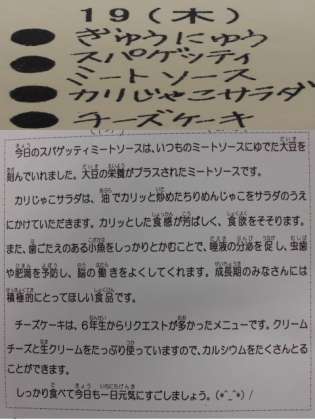 19(木)
ぎゅうにゅう
スパゲッティ
ミートソース
カリじゃこサラダ
チーズケーキ
今日のスパゲッティミートソースは、いつものミートソースにゆでた大豆を
刻んでいれました。大豆の栄養がプラスされたミートソースです。
カリじゃこサラダは、油でカリッと炒めたちりめんじゃこをサラダのうえ
にかけていただきます。カリッとした食感が芳ばしく、食欲をそそります。
また、歯ごたえのある小魚をしっかりとかむことで、唾液の分泌を促し、虫歯
や肥満を予防し、脳の働きをよくしてくれます。成長期のみなさんには
積極的にとってほしい食品です。
チーズケーキは、6年生からリクエストが多かったメニューです。クリーム
チーズと生クリームをたっぷり使っていますので、カルシウムをたくさんとる
ことができます。
しっかり食べて今日も一日元気にすごしましょう。(*^_^*)/